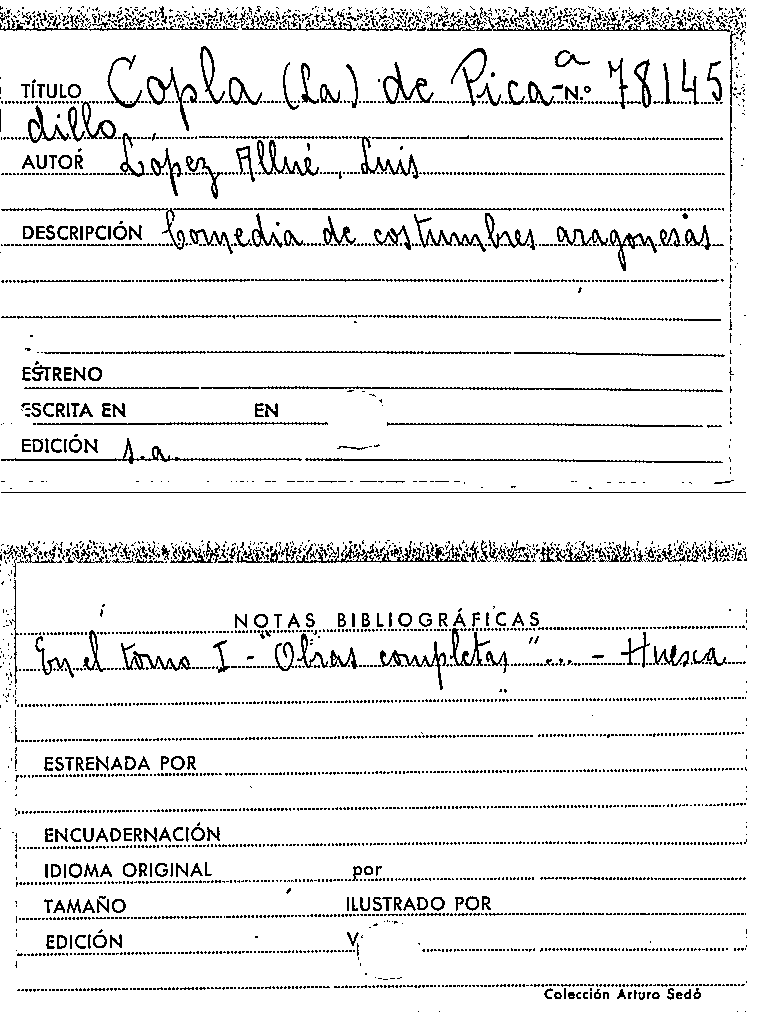 TÍTULO Copla (La) de Pica- a N.º 78145
dillo
AUTOR López Allué, Luis
DESCRIPCIÓN Comedia de costumbres aragonesas
ESTRENO
ESCRITA EN EN
EDICIÓN s.a.
NOTAS BIBLIOGRÁFICAS
En el tomo I - "Obras completas" ... - Huesca
ESTRENADA POR
ENCUADERNACIÓN
IDIOMA ORIGINAL por
TAMAÑO ILUSTRADO POR
EDICIÓN V
Colección Arturo Sedó